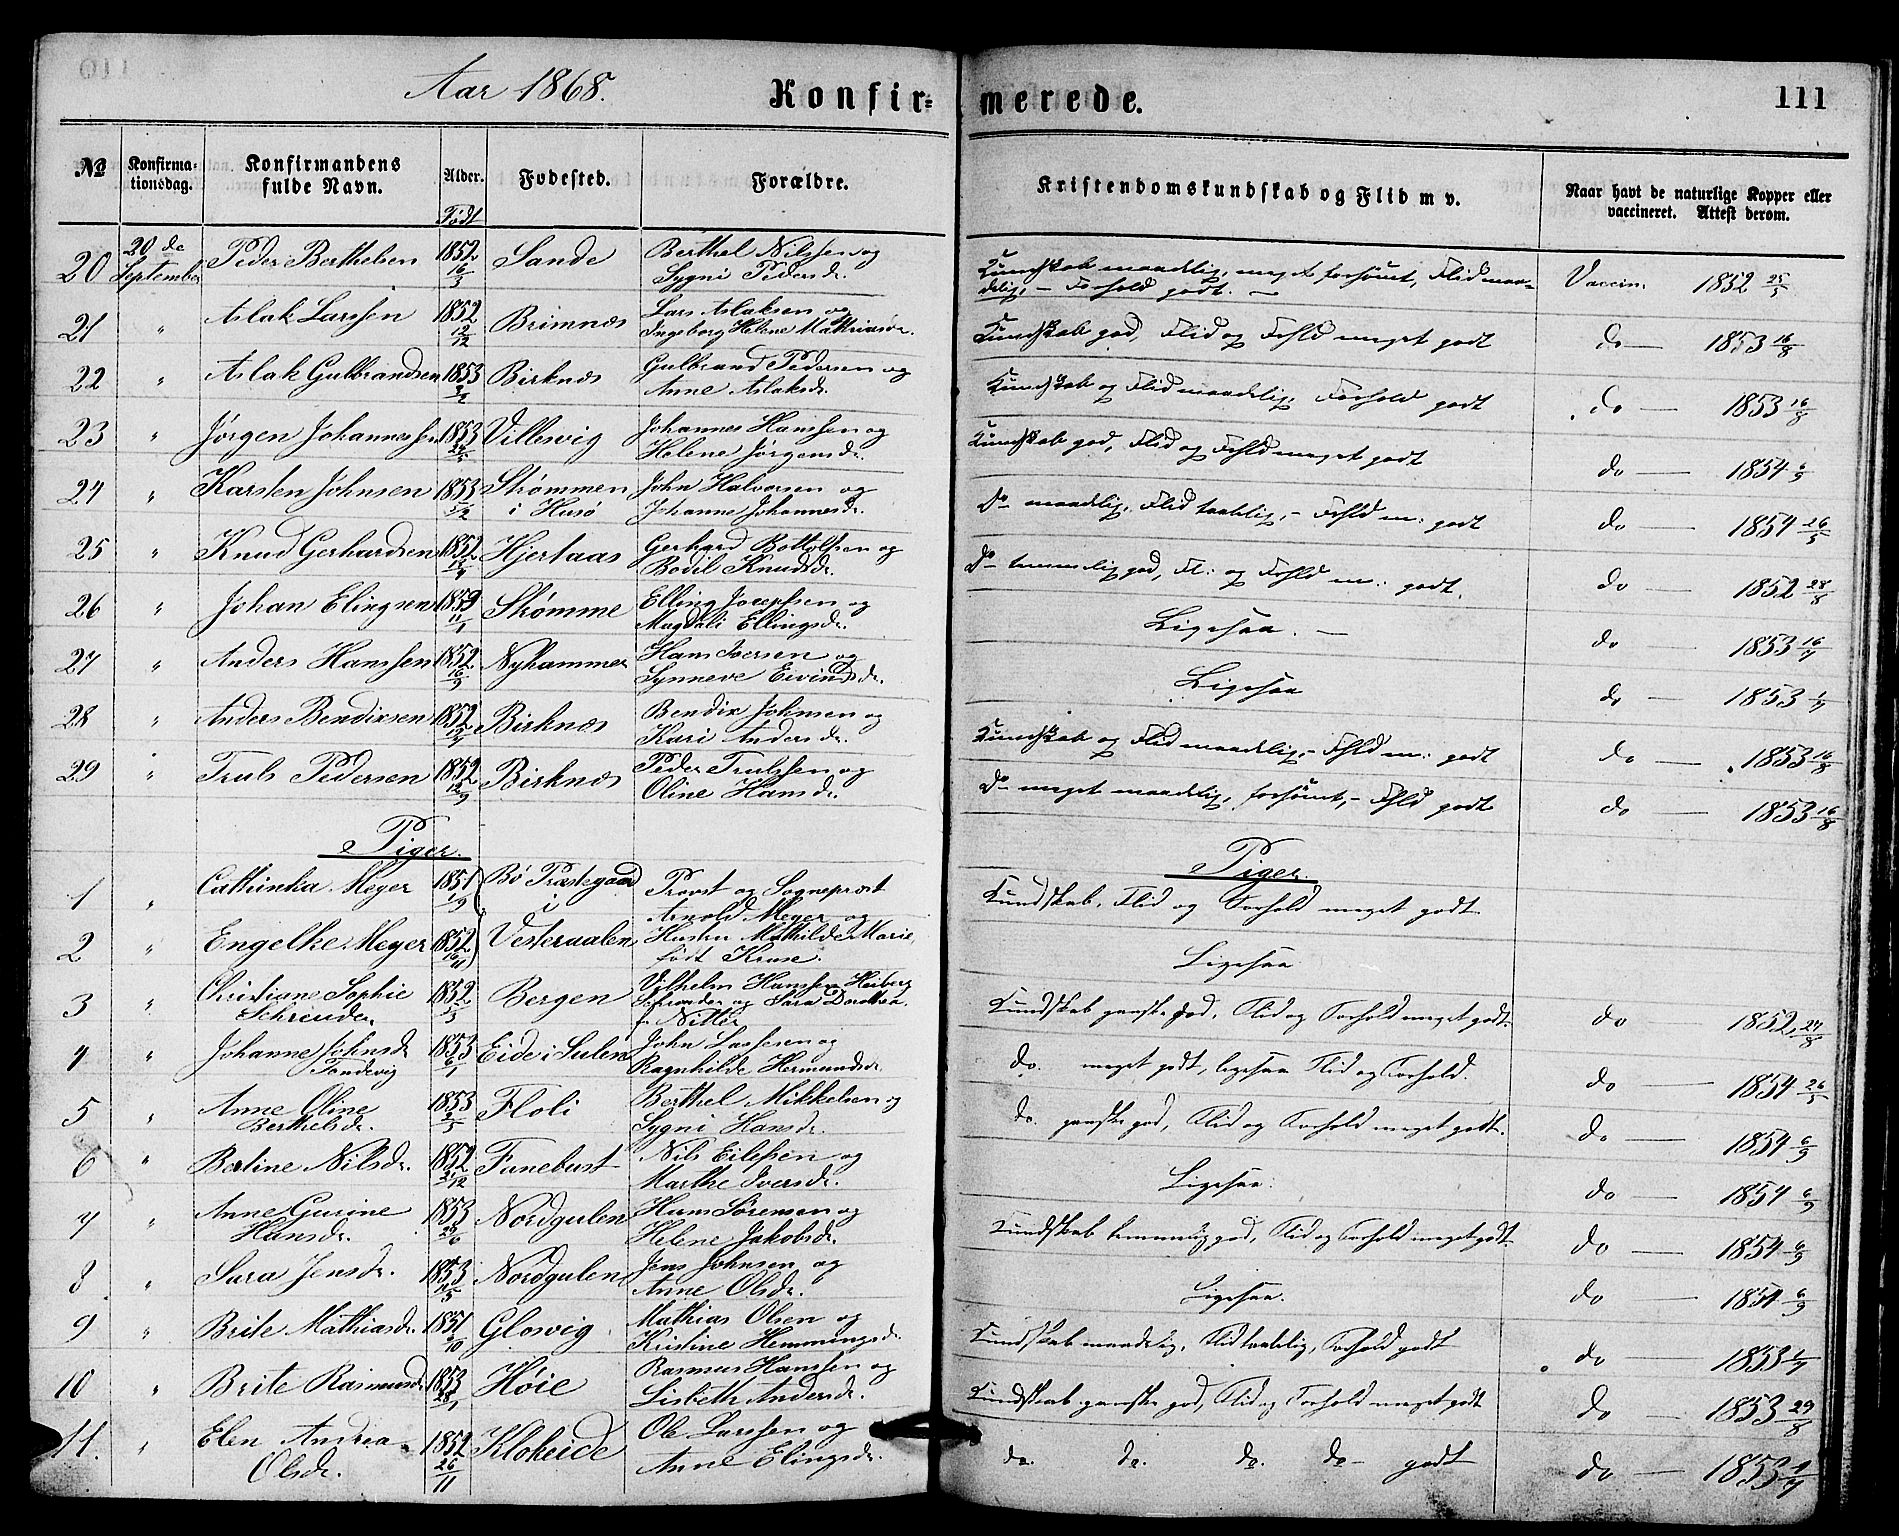 Aar 1868.
Konfir=
merede.
111
No
Konfirma=
tionsdag.
Konfirmandens
fulde Navn.
Alder.
Født
Fødested.
Forældre.
Kristendomskundskab og Flid m v.
Naar havt de naturlige Kopper eller
vaccineret. Attest derom.
20 20 de September Peder Berthelsen 1852 16/3 Sande Berthel Nilssen og
Sygni Pedersdr.
Kundskab maadelig, meget forsømt, Flid maa=
delig, - Forhold godt. - Vaccin. 1852 25/5
21 " Aslak Larssen 1852 12/12 Brimnæs Lars Aslaksen og
Ingeborg Helene Mathiasdr.
Kundskab god, Flid og Fohld meget godt do - 1853 16/8
22 " Aslak Gulbrandsen 1853 Birknæs Gulbrand Pedersen og
Anne Aslaksdr.
Kundskab og Flid maadelig, Forhold godt do - 1853 16/8
23 " Jørgen Johannessen 1853 Villesvig Johannes Hanssen og
Helene Jørgensdr.
Kundskab god, Flid og Fohld meget godt do - 1854 6/9
24 " Karsten Johnsen 1853 Strømmen John Halvorsen og
i Husø Johanne Johannesdr.
Do maadelig, Flid taalelig, - Fohld m: godt do - 1854 26/5
25 " Knud Gerhardsen 1852 Hjertaas Gerhard Bottolfsen og
Bodil Knudsdr.
Do temmelig god, Fl: og Fohld m: godt. do - 1852 28/8
26 " Johan Elingsen Strømme Elling Josephsen og
Magdali Ellingsdr.
Ligesaa. - do - 1853 16/7
27 " Anders Hanssen 1852 16/9 Nyhammer Hans Iversen og
Synneve Eivindsdr.
Ligesaa do - 1853
28 " Anders Bendixsen 1852 Birknæs Bendix Johnsen og
Kari Andersdr.
Kundskab og Flid maadelig, - Fohld m: godt do - 1853 16/8
29 " Truls Pedersen 1852 12/9 Birknæs Peder Trulssen og
Oline Hansdr.
Do meget maadelig, forsømt, - Fohld godt do - 1853 16/8
Piger.
Piger.
1 " Cathinka Meyer 1851 1/9 Bø Præstegaard Provst og Sogneprest
i Arnold Meyer og
Kundskab, Flid og Forhold meget godt
2 " Engelke Meyer 1852 16/11 Vesteraalen Hustru Mathilde Marie,
født Kruse.
Ligesaa
3 " Christiane Sophie 1852 Bergen Vilhelm Hanssen Heiberg
Schreuder Schreuder og Sara Dorothea
f. Nitter
Kundskab ganske god, Flid og Forhold meget godt. do - 1852 27/8
4 " Johanne Johnsdr 1853 6/1 Eide i Sulen John Larssen og
Tandevig Ragnhilde Hermundsdr.
do. meget godt, ligesaa Flid og Forhold. do - 1854 26/5
5 " Anne Oline 1853 2/5 Floli Berthel Mikkelsen og
Berthelsdr. Sygni Hansdr.
do. ganske god, Flid og Forhold meget godt. do - 1854 6/9
6 " Bertine Nilsdr. 1852 21/12 Fanebust Nils Eilefsen og
Marthe Iversdr.
Ligesaa. do - 1854 6/9
7 " Anne Gurine 1853 Nordgulen Hans Sørensen og
Hansdr. Helene Jakobsdr.
Kundskab temmelig god, Flid og Forhold meget godt. do - 1854 6/9
8 " Sara Jensdr. 1853 Nordgulen Jens Johnsen og
Anne Olsdr.
Ligesaa. do - 1854 6/9
9 " Brite Mathiasdr. 1851 Glosvig Mathias Olsen og
Kristine Hemmingsdr.
Kundskab maadelig, Flid taalelig, Forhold godt do - 1853
10 " Brite Rasmusdr 1853 28/1 Høie Rasmus Hanssen og
Lisbeth Andersdr.
Kundskab ganske god, Flid og Forhold meget godt do - 1853 29/8
11. " Elen Andrea 1852 26/11 Klokeide Ole Larssen og
Olsdr. Anne Elingsdr.
do. do. do. do - godt do - 1853